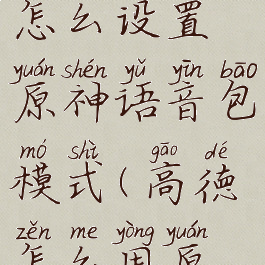 怎么设置
yuán shén yǔ yīn bāo
原神语音包
mó shì gāo dé
模式(高德
zěn me yòng yuán
怎么用原